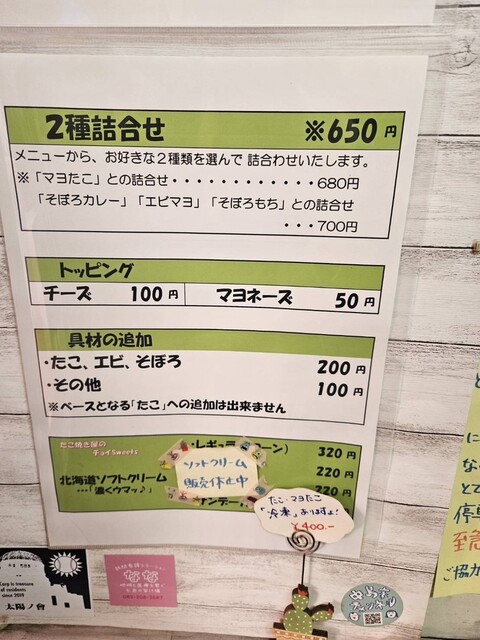 2種詰合せ ※650円
メニューから、お好きな2種類を選んで 詰合わせいたします。
※「マヨたこ」との詰合せ・・・・・・・・・・・・680円
「そぼろカレー」「エビマヨ」「そぼろもち」との詰合せ
・・・700円
トッピング
チーズ 100円 マヨネーズ 50円
具材の追加
・たこ、エビ、そぼろ 200円
・その他 100円
※ベースとなる「たこ」への追加は出来ません
たこ焼き屋の
チョイSweets
レギュラー(コーン) 320円
北海道ソフトクリーム 220円
・・・「濃くウマッ♪」
220円
ソフトクリーム
販売休止中
たこ・マヨたこ
「冷凍」あります!
¥400.-
Corp is treasure
of residents
since 2019
太陽ノ會
なな
と
に
な
とて
停車
至急
ご協力